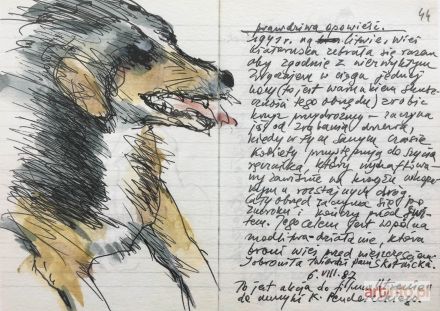 44
prawdziwa opowieść.
1941 r. na Litwie, wieś
zebrała się razem
aby zgodnie z niezwykłym
zwyczajem w ciągu jednej
nocy (to jest warunkiem skute-
czności tego obrzędu) zrobić
krzyż przydrożny – zaczyna
się od zrąbania drzewa,
kiedy w tym samym czasie
kobiety przystępują do szycia
ręcznika, który
na krzyżu
na rozstajnych dróg.
Cały obrzęd zaczyna się po
zmroku i kończy przed świ-
tem. Jego celem jest wspólna
modlitwa-działanie, która
broni wieś przed nieszczęściem.
pani Skotnicka.
6.VIII.87
To jest akcja do filmu
do muzyki K. Pendereckiego.